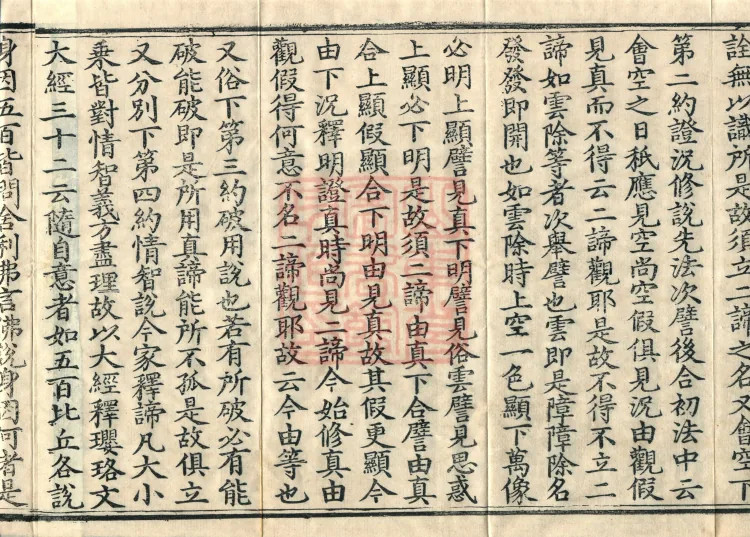 詮無以識所是故須立二諦之名又會空下
第二約證況修說先法次譬後合初法中云
會空之日秖應見空尚空假俱見況由觀假
見真而不得云二諦觀耶是故不得不立二
諦如雲除等者次舉譬也雲即是障障除名
發發即開也如雲除時上空一色顯下萬像
必明上顯譬見真下明譬見俗雲譬見思惑
上顯必下明是故須二諦由真下合譬由真
合上顯假顯合下明由見真故其假更顯今
由下況釋明證真時尚見二諦今始修真由
觀假得何意不名二諦觀耶故云今由等也
又俗下第三約破用說也若有所破必有能
破能破即是所用真諦能所不孤是故俱立
又分別下第四約情智說今家釋諦凡大小
乘皆對情智義方盡理故以大經釋瓔珞文
大經三十二云隨自意者如五百比丘各說
身因五百皆問舍利弗言佛說身因何者是